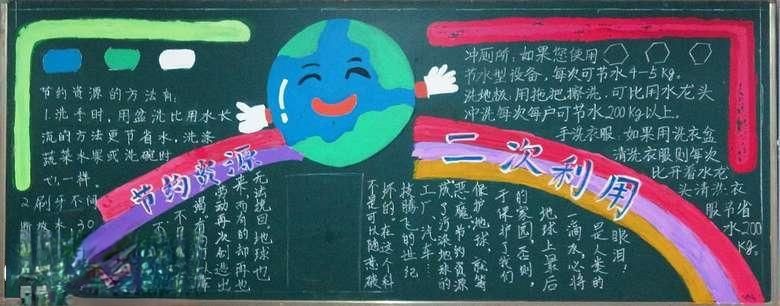 节约资源的方法有:
1.洗手时,用盆洗比用水长
流的方法更节省水,洗涤
蔬菜水果或洗碗时
也一样。
2.刷牙不间
断放水,30
节约资源
二次利用
冲厕所:如果您使用
节水型设备,每次可节水4-5kg。
洗地板:用拖把擦洗,可比用水龙头
冲洗每次每户可节水200kg以上。
手洗衣服:如果用洗衣盆
清洗衣服则每次
比开着水龙
头清洗衣
服节省
水200
kg。
无法挽回地球也
劳动再次创造出
不是可以随意破
坏的,在这个科
技腾飞的世纪
工厂、汽车…
成了污染地球的
恶魔节约资源
保护地球,就等
于保护了我们
的家园,否则,
地球上最后
一滴水,必将
是人类的
眼泪!